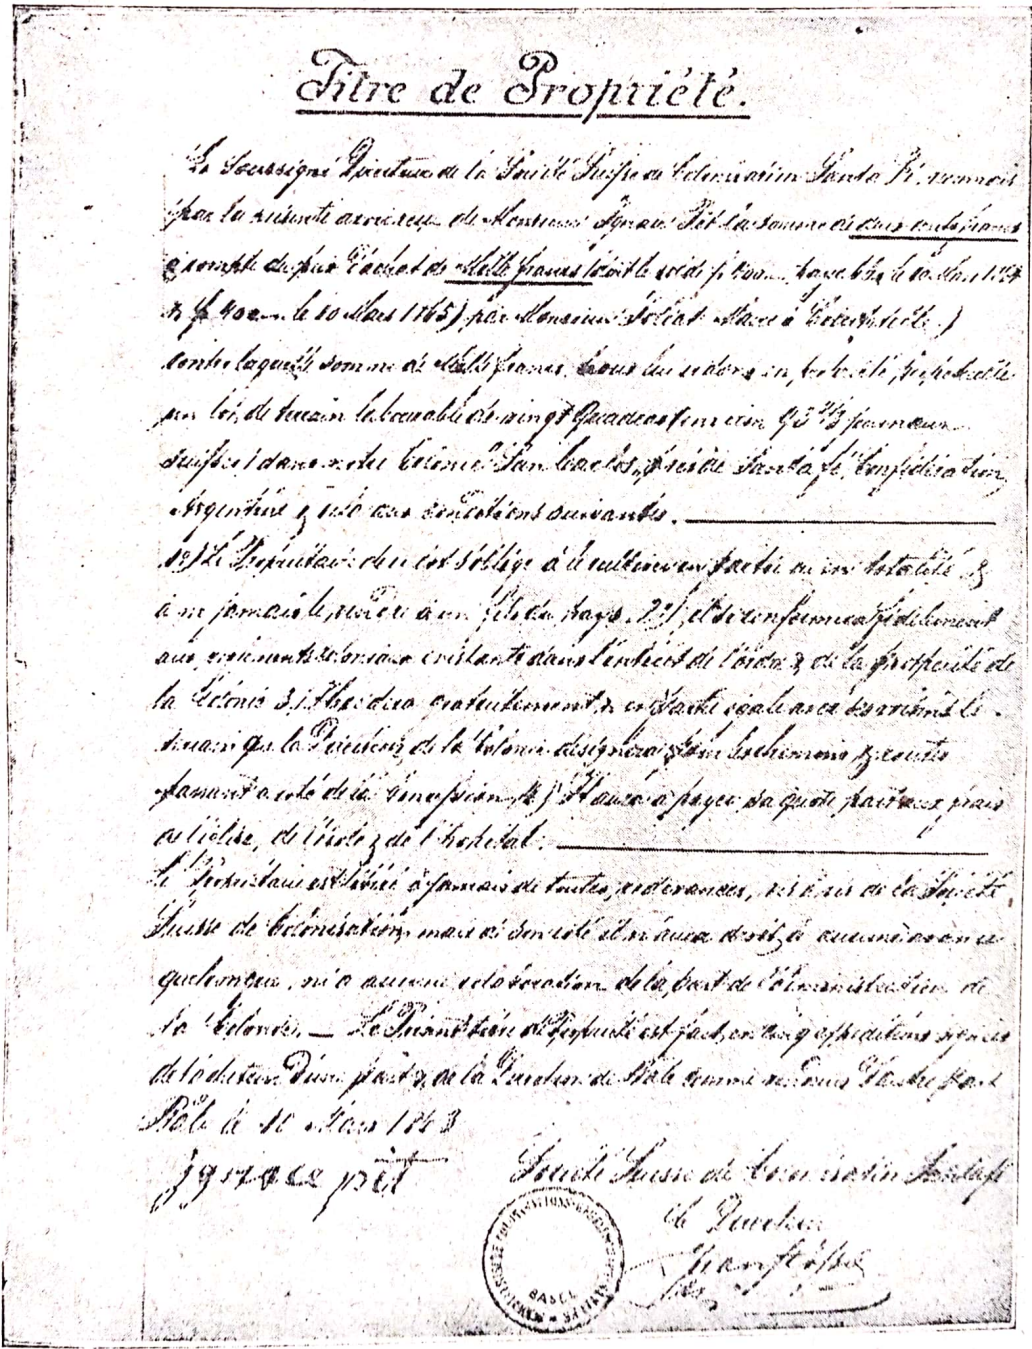 Titre de Propriété.
Le soussigné Directeur de la Société Suisse de Colonisation Santa Fé, reconnait
par la présente avoir reçu de Monsieur Ignace Pit la somme de deux cents francs
à compte du prix d'achat de Mille francs (soit le solde f 400.— payables le 10 Mars 1864
& f 400.— le 10 Mars 1865) par Monsieur Maire à
contre laquelle somme de Mille francs, nous lui cédons en propriété perpétuelle
un lot de terrain labourable de vingt Quadras (environ 93 1/3 journaux
suisses) dans notre Colonie San Carlos, près de Santa fé, Confédération
Argentine & cela aux conditions suivantes.
1º) Le Propriétaire de ce lot s'oblige à le cultiver en partie ou en totalité &
à ne jamais le vendre à un fils du pays. 2º) il se conformera fidèlement
aux règlements coloniaux existants dans l'intérêt de l'ordre & de la prospérité de
la Colonie 3.) Il cèdera gratuitement & en partie égale avec ses voisins le
terrain que la Direction de la Colonie désignera pour les chemins & routes
passant à côté de la Concession. 4) Il aura à payer sa quote part aux frais
de l'église, de l'école & de l'hopital.
Le Propriétaire est libéré à jamais de toutes redevances, vis à vis de la Société
Suisse de Colonisation, mais de son côté il n'aura droit à aucune avance
quelconque, ni à aucune réclamation de la part de l'administration de
la Colonie. — Le Présent titre de Propriété est fait en cinq expéditions signées
de l'acheteur d'une part & de la Direction de Bâle comme vendeurs d'autre part
Bâle le 10 Mars 1863
Ignace pit
Société Suisse de Colonisation Santa fé
Le Directeur
BASEL